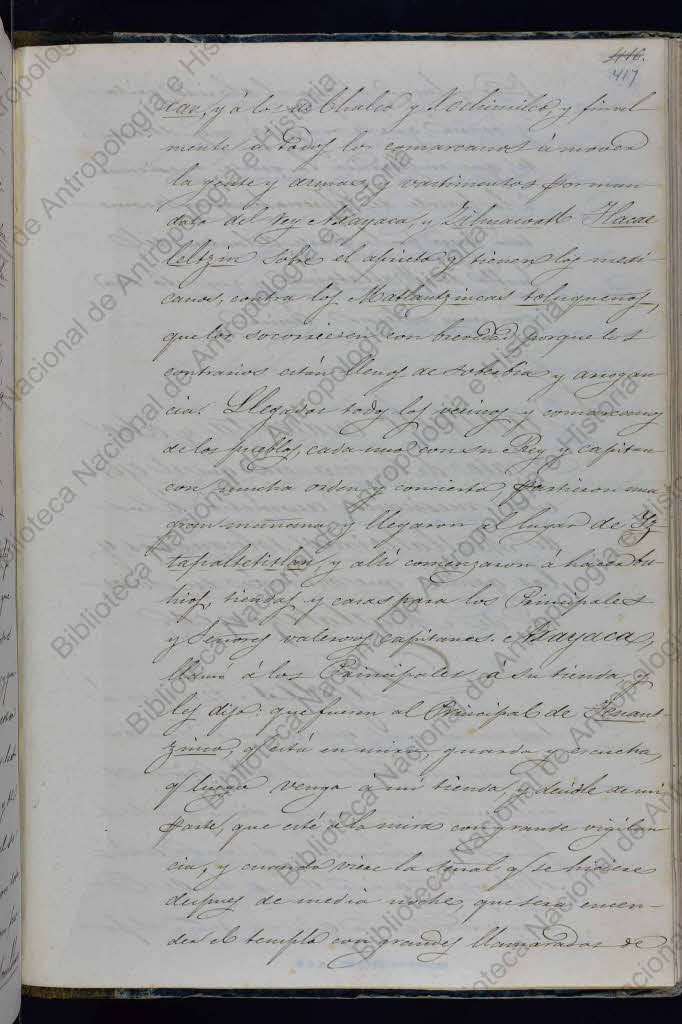 416.
417
can, y à los de Chalco y Xochimilco, y final
mente a todos los comarcanos à mover
la gente y armas, y vastimentos por man
dato del Rey Axayaca, y Zihuacoatl Tlacae
leltzin sobre el aprieto q.e tienen los mexi
canos, contra los Matlatzincas toluqueños,
que los socorriesen con brevedad porque los
contrarios están llenos de soberbia y arrogan
cia. Llegados todos los vecinos y comarcanos
de los pueblos, cada uno con su Rey y capitan
con mucha orden y concierto, partieron una
gran mañana y llegaron al lugar de Yz
tapaltetitlan, y alli comenzaron á hacer bu
hios, tiendas y casas para los Principales
y Señores valerosos capitanes. Axayaca,
llamó á los Principales á su tienda, y
les dijo: que fuesen al Principal de Tenant
zinco, q.e está en mira, guarda y escucha,
q.e luego venga á mi tienda, y decidle de mi
parte, que esté á la mira con grande vigilan
cia, y cuando viere la señal q.e se hiciere
despues de media noche, que será encen-
der el templo con grandes llamaradas de
Biblioteca Nacional de Antropología e Historia